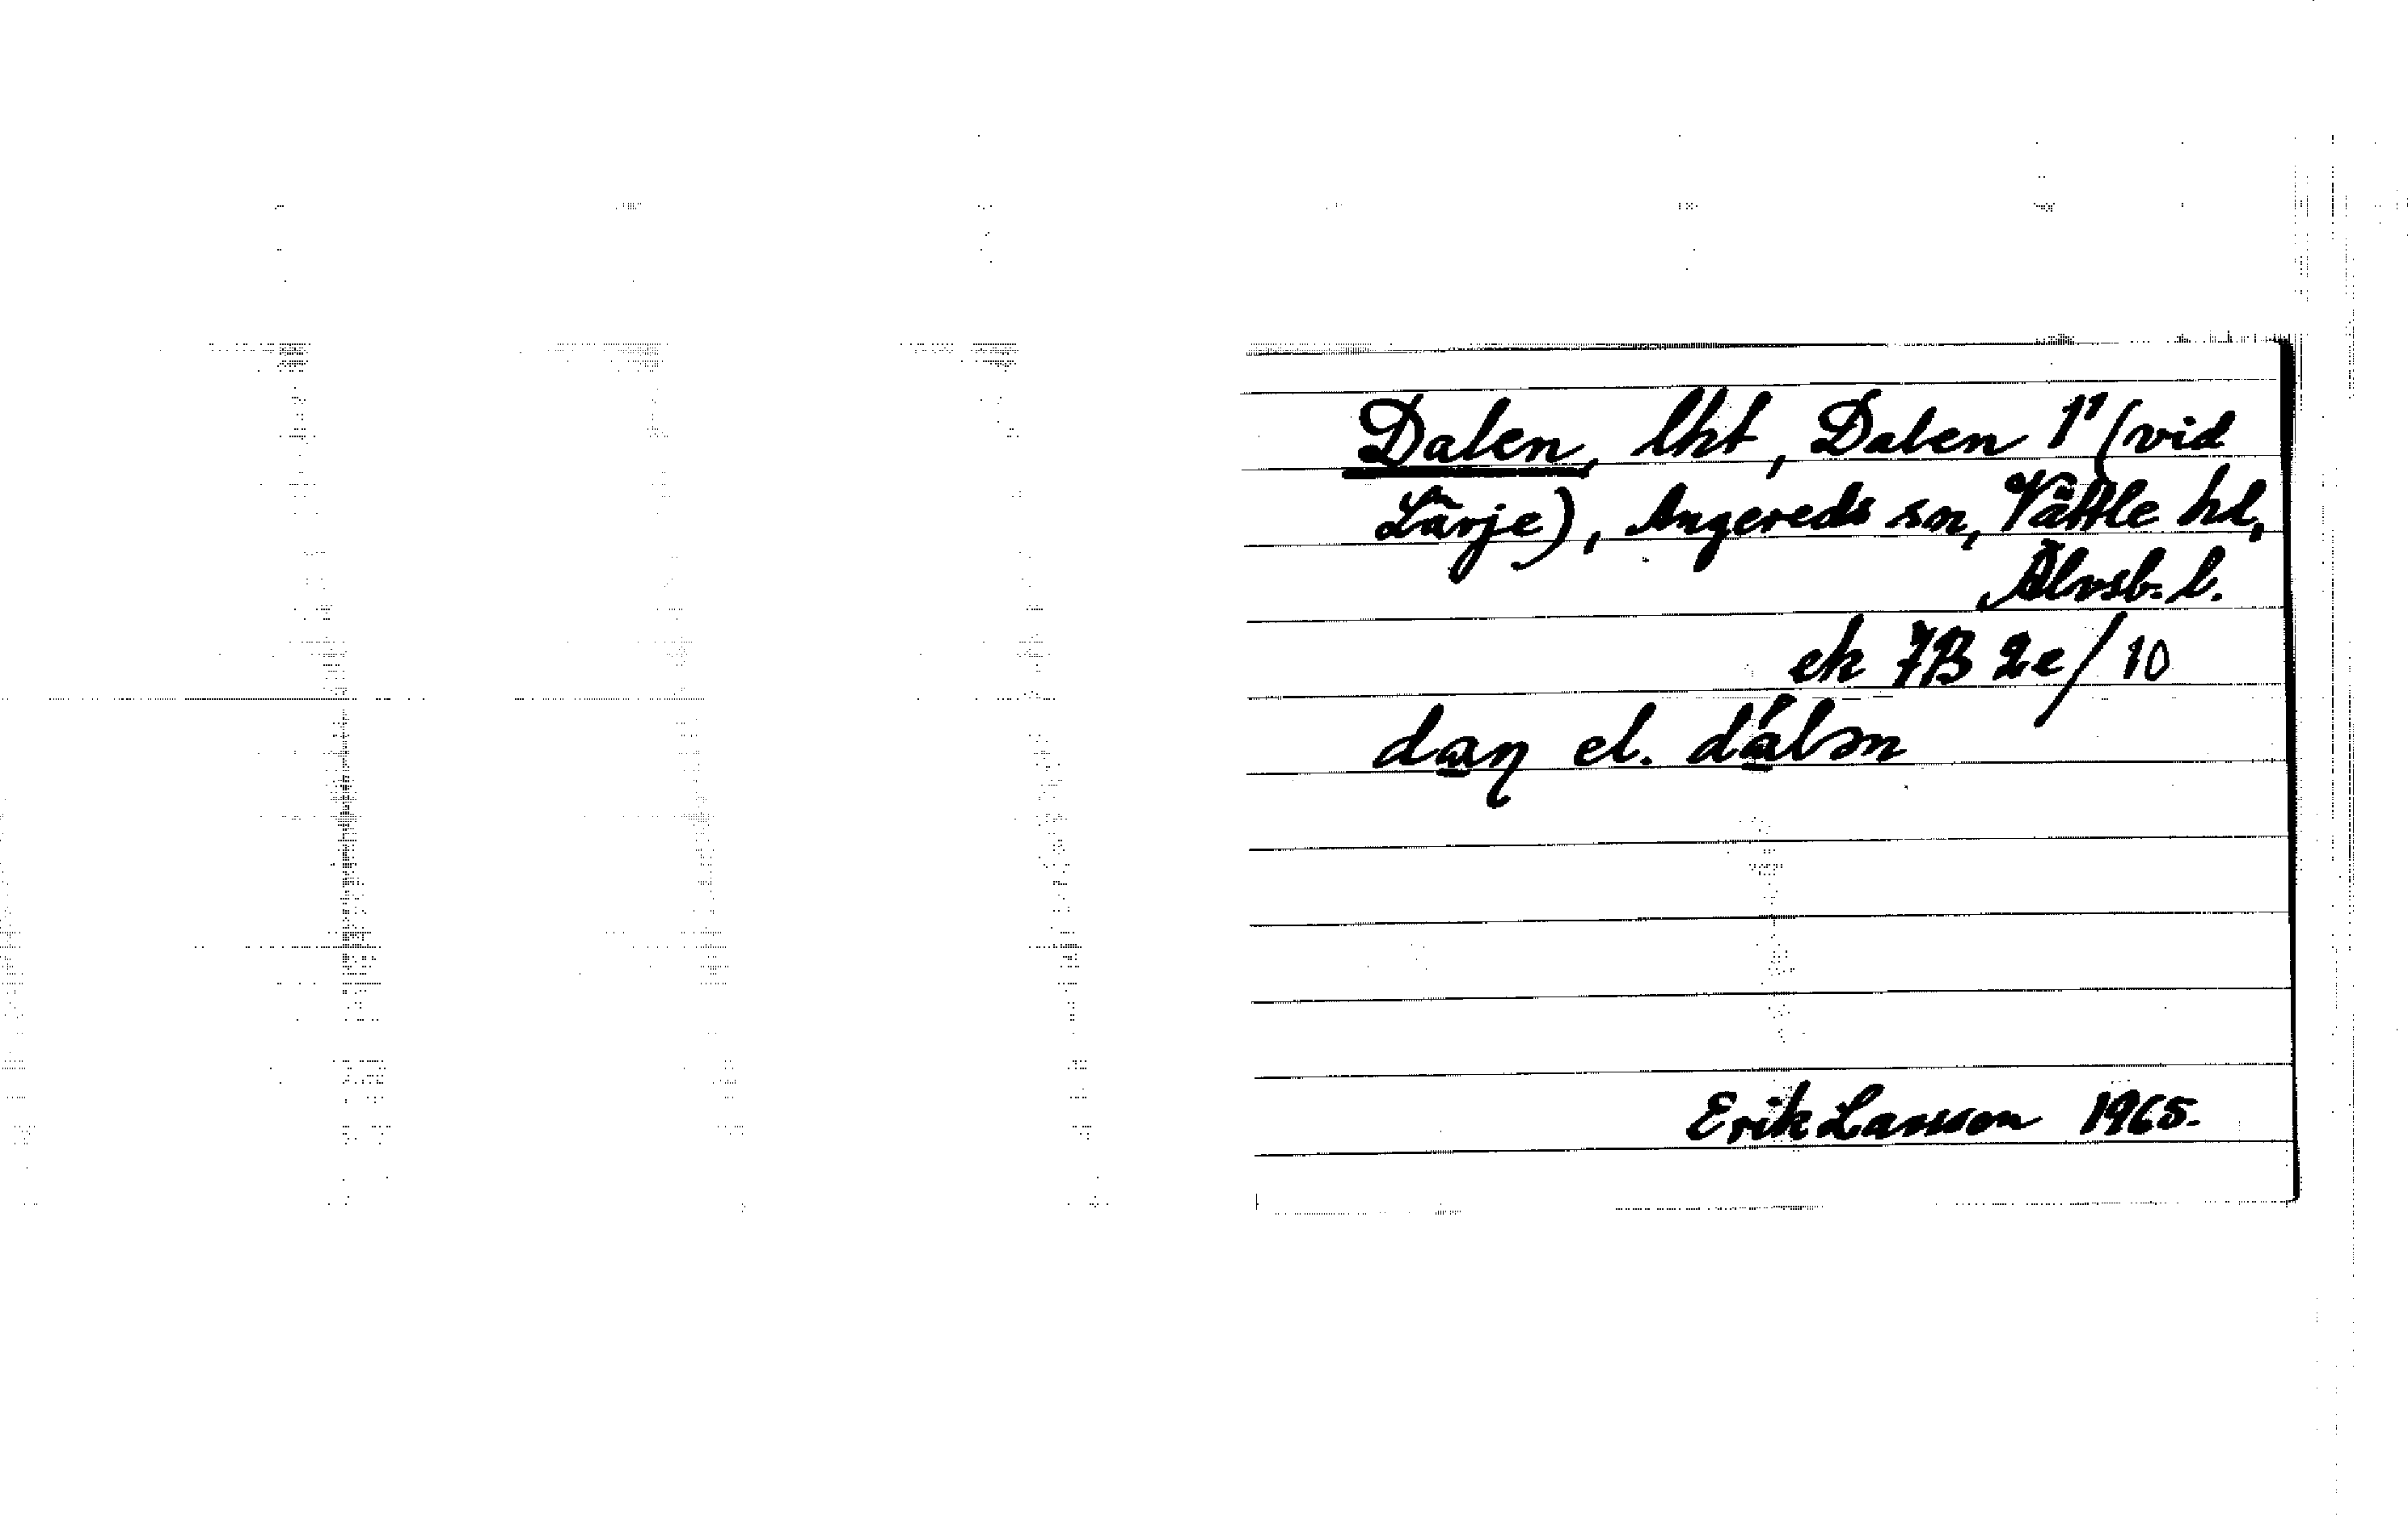 Dalen, lht, Dalen 1" (vid
Lärje), Angereds sn, Vättle hd,
Älvsb. l.
ek 7B 2e/10
daɳ el. dálən
Erik Larsson 1965.